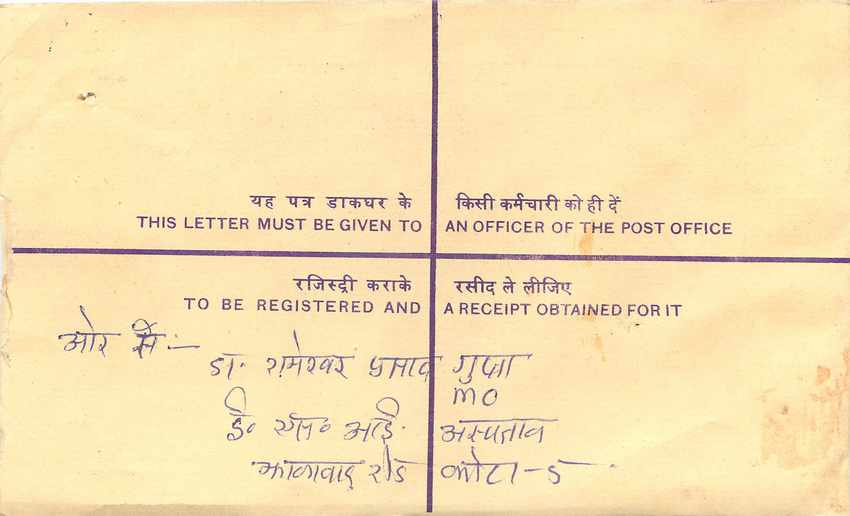 यह पत्र डाकघर के किसी कर्मचारी को ही दें
THIS LETTER MUST BE GIVEN TO AN OFFICER OF THE POST OFFICE
रजिस्ट्री कराके रसीद ले लीजिए
TO BE REGISTERED AND A RECEIPT OBTAINED FOR IT
ओर से :-
डा. रामेश्वर प्रसाद गुप्ता
MO
ई॰ एस॰ आई. अस्पताल
झालावाड़ रोड कोटा-5